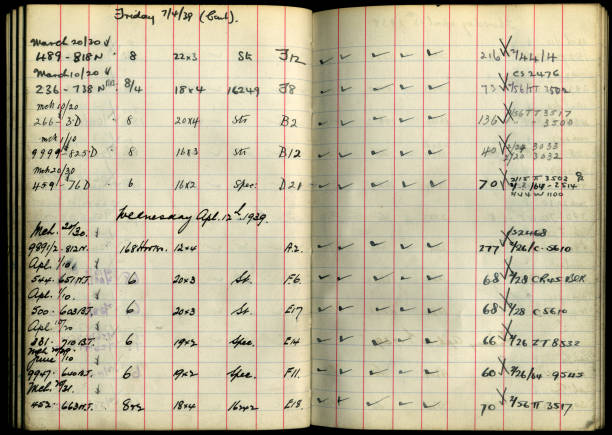 Friday 7/4/39 (Cont.)
March 20/30
489 - 818 N 8 22x3 St F12 216 2/44/4
March 10/20 CS 2476
236 - 738 N 8/4 18x4 16249 F8 73 2/56 TT 3502
Mch 10/20
266 - 3.D 8 20x4 Str B2 136 2/56 TT 3517
- 3500
Mch 1/10
9999 - 825.D 8 16x3 Str B12 40 2/24 3033
2/20 3032
Mch 20/30
459 - 76 D 6 16x2 Spec. D21 70 2/15 T 3502
444 W 1100
Wednesday Apl. 12th. 1939.
Mch. 21/30.
989 1/2 - 812 N. 168 12x4 A.2. 277 2/26/C-5610
Apl. 1/10.
544 - 651 NT. 6 20x3 St. F.6. 68 2/28
Apl. 1/10.
500 - 603 BT. 6 20x3 St. E17 68 2/28 C 5610
Apl. 10/20
281 - 710 BT. 6 19x2 Spec. E14 66 2/26 TT 8532
June 1/10
9947 - 640 BT. 6 19x2 Spec. F11. 60 2/26/64 - 9545
Mch. 21/31.
452 - 663 NT. 8x2 18x4 16x2 E18. 70 2/56 TT 3517